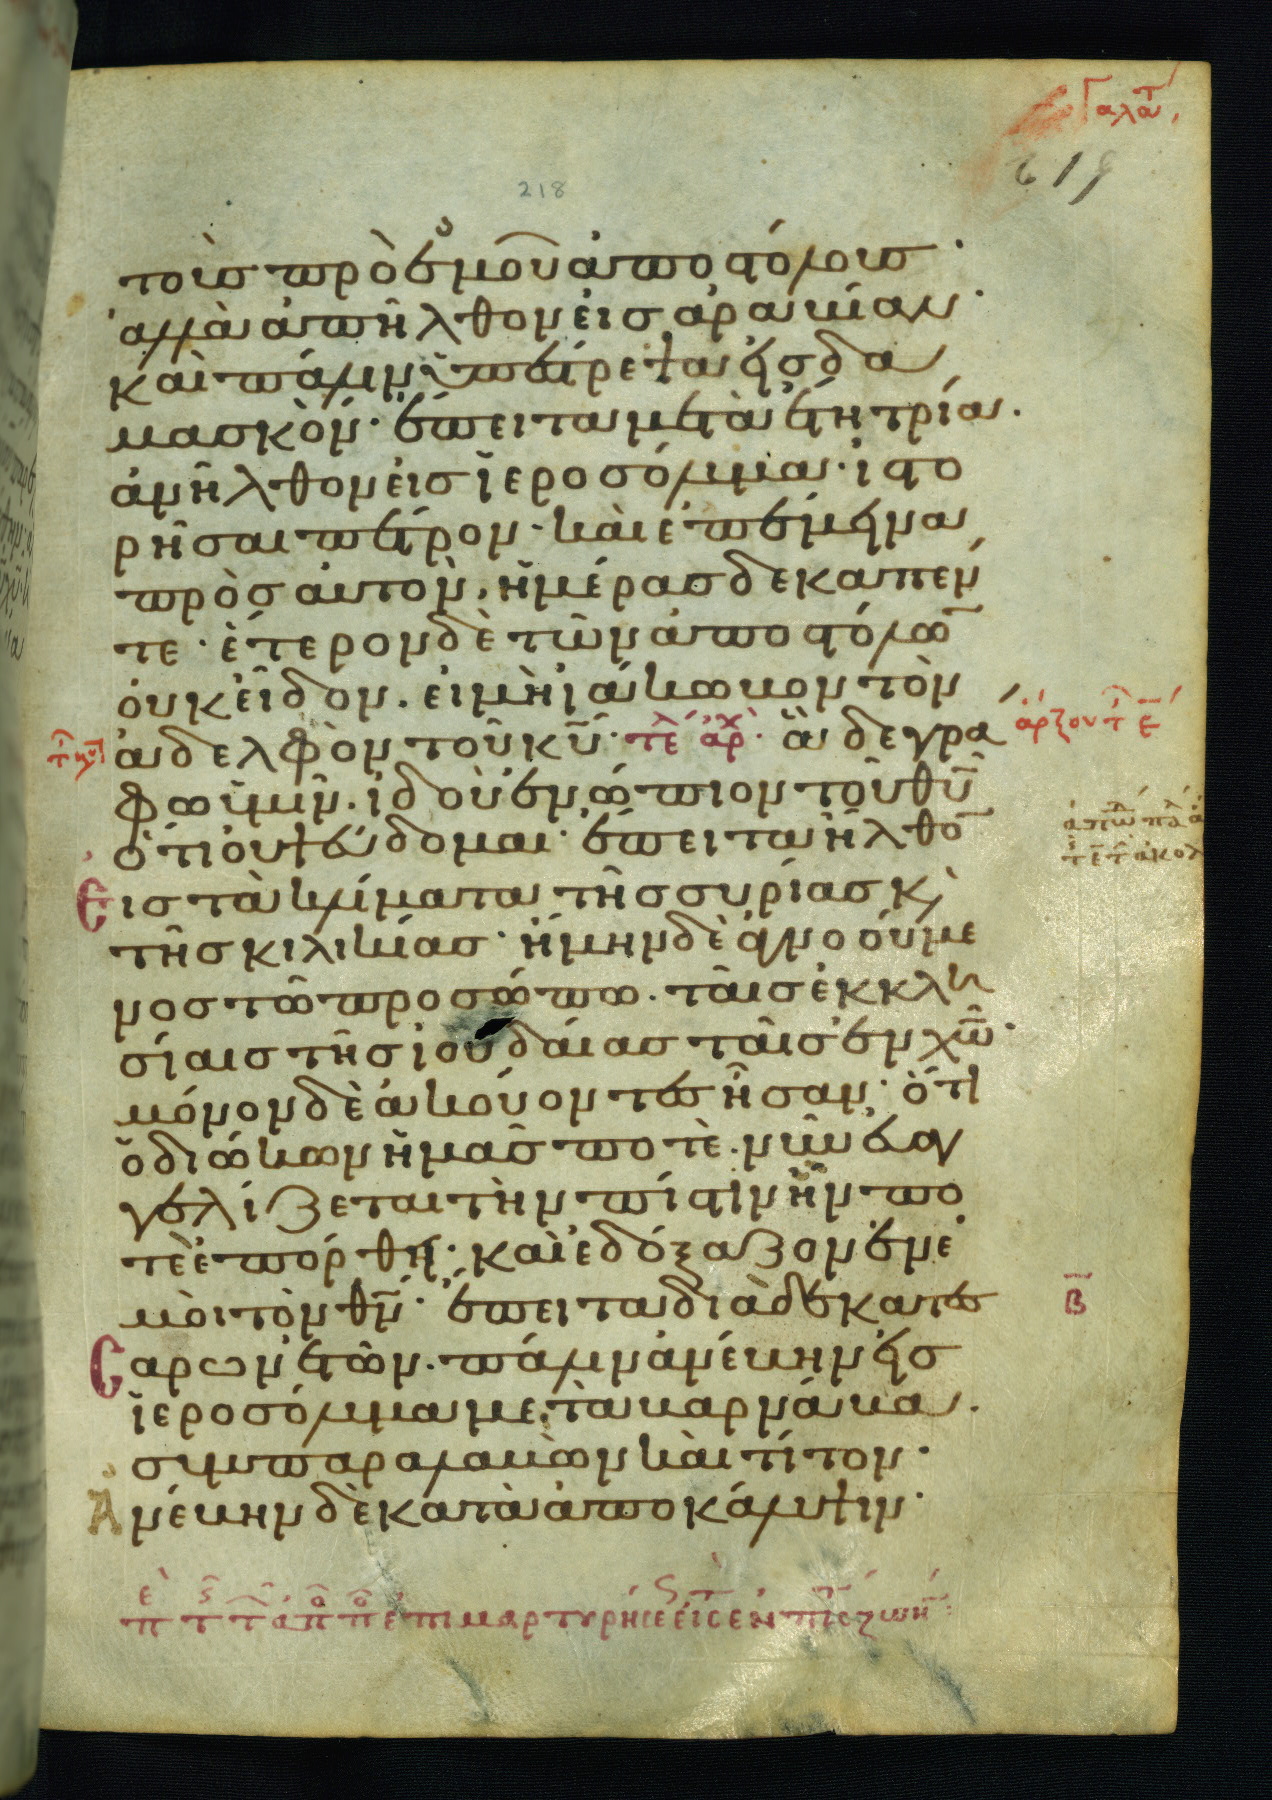 Γαλατ
219
218
τοὺσ πρὸ ἐμοῦ ἀποστόλουσ·
ἀλλὰ ἀπῆλθον εἰσ ἀραβίαν·
καὶ πάλιν ὑπέστρεψα εἰσ δα
μασκόν· ἔπειτα μετὰ ἔτη τρία·
ἀνῆλθον εἰσ ἱεροσόλυμα· ἱστο
ρῆσαι πέτρον· καὶ ἐπέμεινα
πρὸσ αὐτὸν, ἡμέρασ δεκαπέν
τε· ἕτερον δὲ τῶν ἀποστόλω̅
οὐκ εἶδον. εἰ μὴ ἰάκωβον τὸν
ἀδελφὸν τοῦ κ̅υ̅· τε αρχ· ἃ δε γρά
φω ὑμῖν· ἰδοὺ ἐνώπιον τοῦ θ̅υ̅
ὅτι οὐ ψεύδομαι· ἔπειτα ἦλθο̅
εἰσ τὰ κλίματα τῆσ συρίασ κ̀
τῆσ κιλικίασ· ἤμην δὲ ἀγνοούμε
νοσ τῶ προσώπω. ταῖσ ἐκκλη
σίαισ τῆσ ἰουδαίασ ταῖσ ἐν χ̅ω̅·
μόνον δὲ ἀκούοντεσ ἦσαν· ὅτι
ὁ διώκων ἡμᾶσ ποτὲ. νῦν εὐαγ
γελίζεται τὴν πίστιν ἥν πο
τὲ ἐπόρθει· καὶ ἐδόξαζον ἐν ἐ
μοὶ τὸν θ̅ν̅· ἔπειτα διὰ δεκατεσ
σαρων ἐτῶν. πάλιν ἀνέβην εἰσ
ἱεροσόλυμα μετὰ βαρνάβα.
συμπαραλαβὼν καὶ τίτον·
Ἀνέβην δὲ κατὰ ἀποκάλυψιν·
Β